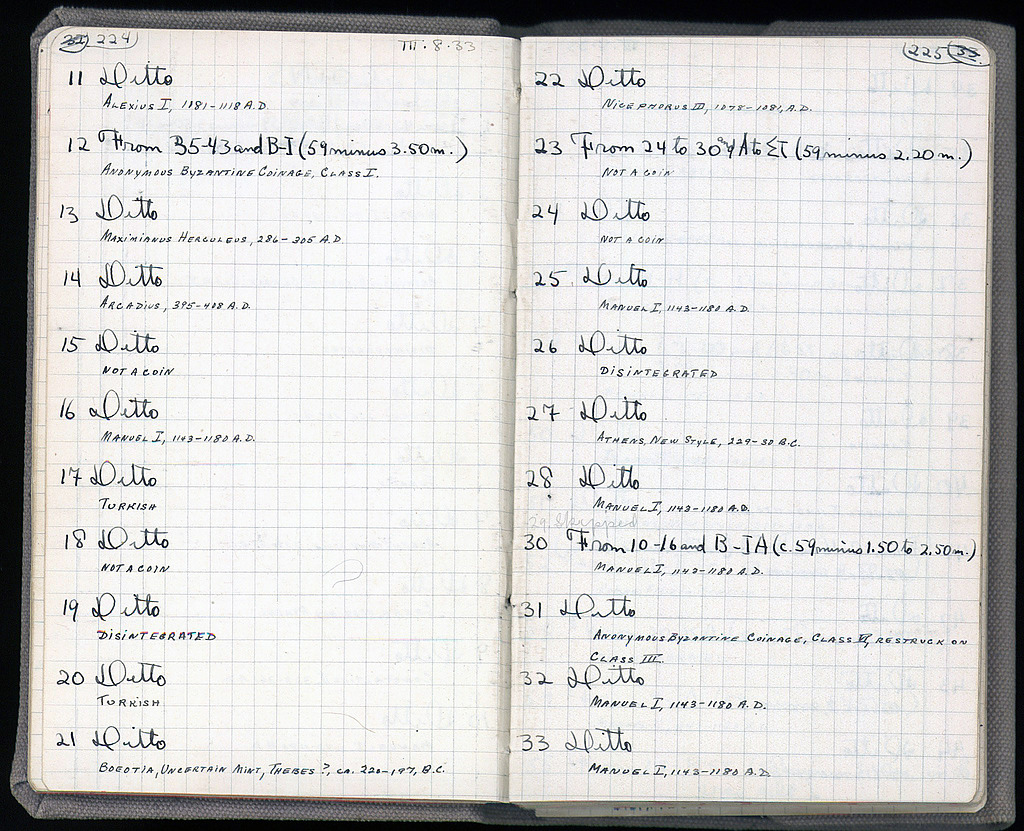 32 224
III. 8. 33
11 Ditto
ALEXIUS I, 1181-1118 A.D.
12 From 35-43 and B-I (59 minus 3.50 m.)
ANONYMOUS BYZANTINE COINAGE, CLASS I.
13 Ditto
MAXIMIANUS HERCULEUS, 286-305 A.D.
14 Ditto
ARCADIUS, 395-408 A.D.
15 Ditto
NOT A COIN
16 Ditto
MANUEL I, 1143-1180 A.D.
17 Ditto
TURKISH
18 Ditto
NOT A COIN
19 Ditto
DISINTEGRATED
20 Ditto
TURKISH
21 Ditto
BOEOTIA, UNCERTAIN MINT, THEBES?, ca. 220-197, B.C.
225 33
22 Ditto
NICEPHORUS III, 1078-1081, A.D.
23 From 24 to 30 and A to ΣT (59 minus 2.20 m.)
NOT A COIN
24 Ditto
NOT A COIN
25 Ditto
MANUEL I, 1143-1180 A.D.
26 Ditto
DISINTEGRATED
27 Ditto
ATHENS, NEW STYLE, 229-30 B.C.
28 Ditto
MANUEL I, 1143-1180 A.D.
29 Skipped
30 From 10-16 and B-IA (c. 59 minus 1.50 to 2.50 m.)
MANUEL I, 1143-1180 A.D.
31 Ditto
ANONYMOUS BYZANTINE COINAGE, CLASS VI, RESTRUCK ON
CLASS III.
32 Ditto
MANUEL I, 1143-1180 A.D.
33 Ditto
MANUEL I, 1143-1180 A.D.